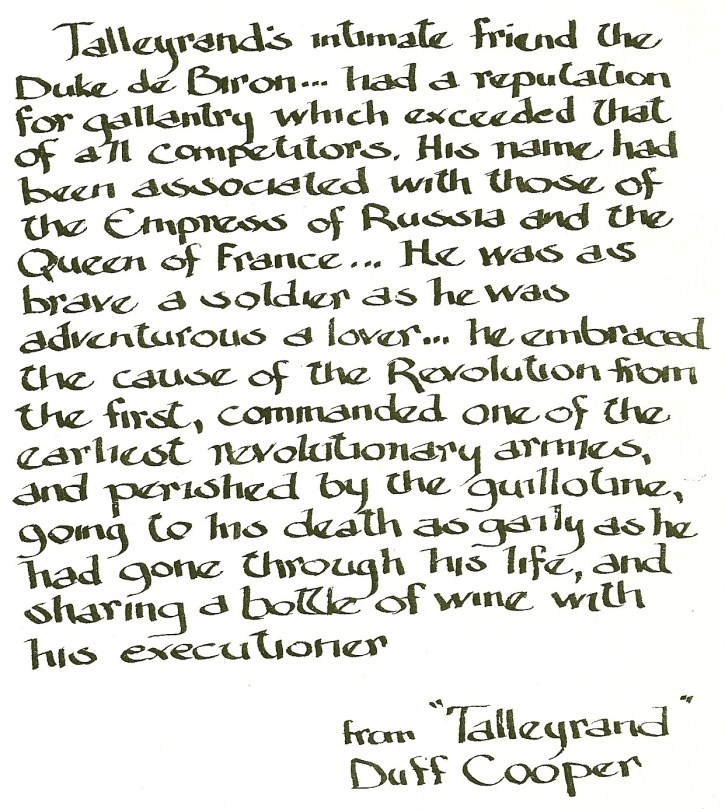 Talleyrand's intimate friend the
Duke de Biron... had a reputation
for gallantry which exceeded that
of all competitors. His name had
been associated with those of
the Empress of Russia and the
Queen of France... He was as
brave a soldier as he was
adventurous a lover... he embraced
the cause of the Revolution from
the first, commanded one of the
earliest revolutionary armies,
and perished by the guillotine,
going to his death as gaily as he
had gone through his life, and
sharing a bottle of wine with
his executioner
from "Talleyrand"
Duff Cooper